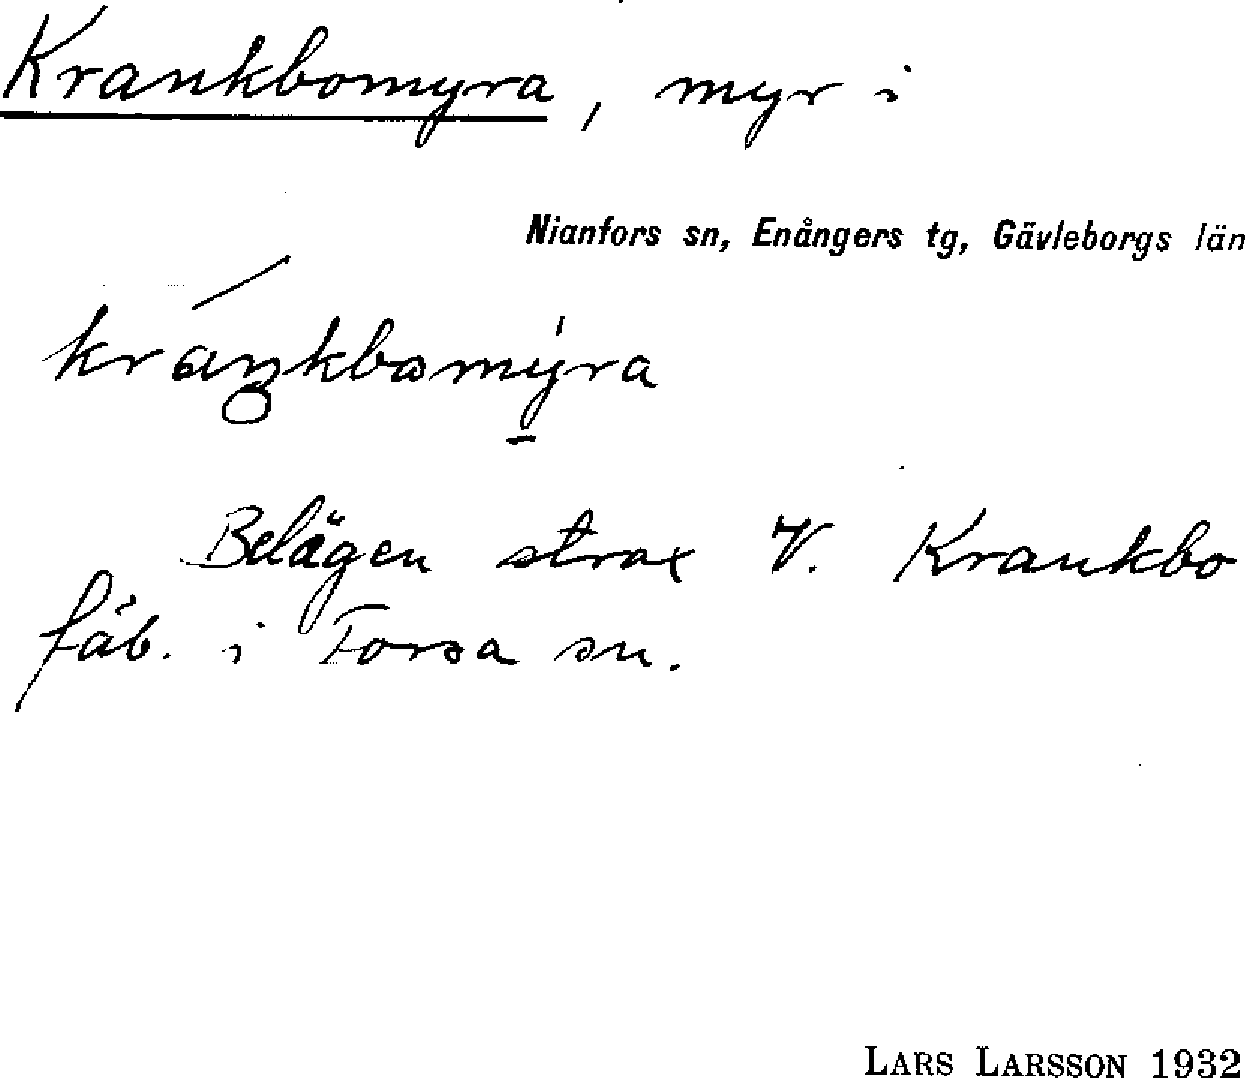 Krankbomyra, myr i
Nianfors sn, Enångers tg, Gävleborgs län
kráŋkbomy̠ra
Belägen strax V. Krankbo
fäb. i Forsa sn.
LARS LARSSON 1932